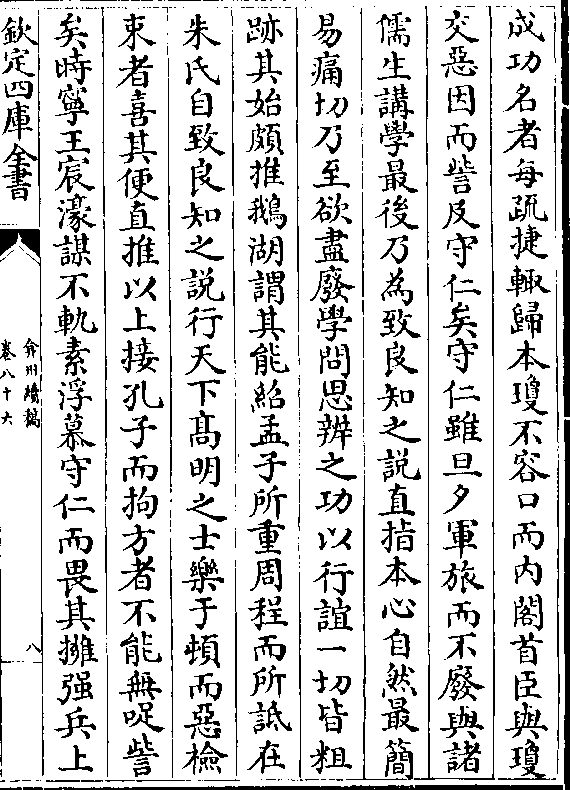 成功名者每疏捷輙歸本瓊不容口而内閣首臣與瓊
交惡因而訾及守仁矣守仁雖旦夕軍旅而不廢與諸
儒生講學最後乃為致良知之説直指本心自然最簡
易痛切乃至欲盡廢學問思辨之功以行誼一切皆粗
跡其始頗推鵝湖謂其能紹孟子所重周程而所詆在
朱氏自致良知之説行天下髙明之士樂于頓而惡檢
束者喜其便直推以上接孔子而拘方者不能無啙訾
矣時寧王宸濠謀不軌素浮慕守仁而畏其擁强兵上
欽定四庫全書
弇州續稿
卷八十六
八